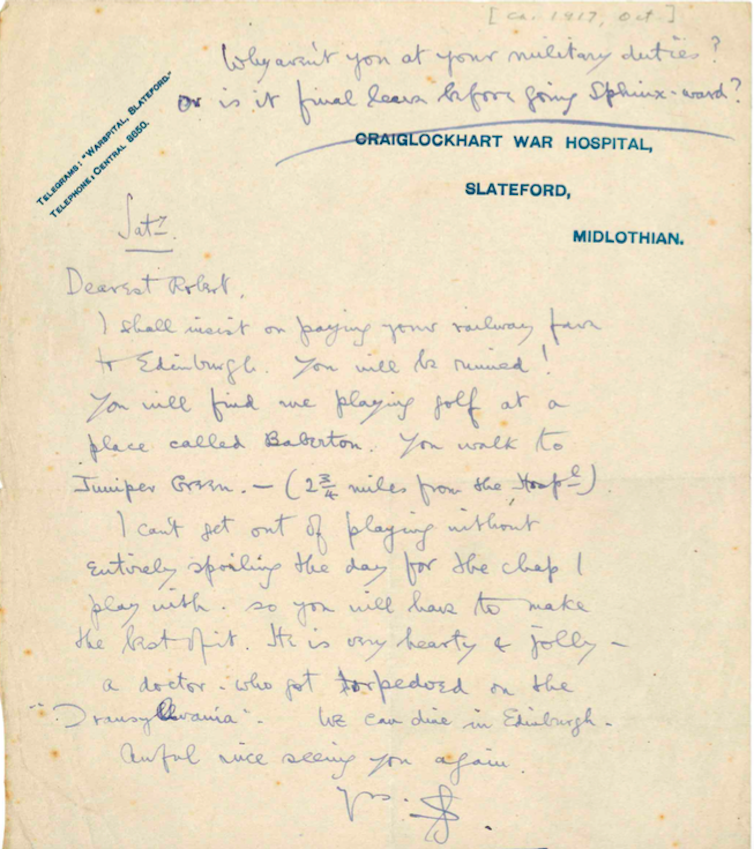 [ca. 1917, Oct]
Why aren't you at your military duties?
or is it final leave before going Sphinx-ward?
TELEGRAMS: "WARSPITAL, SLATEFORD."
TELEPHONE: CENTRAL 8650.
CRAIGLOCKHART WAR HOSPITAL,
SLATEFORD,
MIDLOTHIAN.
Saty.
Dearest Robert,
I shall insist on paying your railway fare
to Edinburgh. You will be ruined!
You will find me playing golf at a
place called Baberton. You walk to
Juniper Green. — (2¾ miles from the Hospl).
I can't get out of playing without
entirely spoiling the day for the chap I
play with. so you will have to make
the best of it. He is very hearty & jolly –
a doctor. who got torpedoed on the
"Transylvania". We can dine in Edinburgh.
Awful nice seeing you again.
yrs. SS.